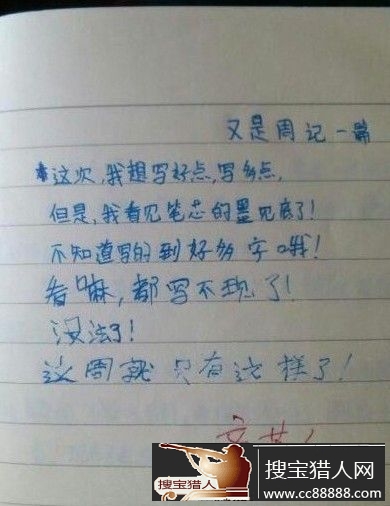 又是周记一篇
这次,我想写好点,写多点,
但是,我看见笔芯的墨见底了!
不知道写的到好多字哦!
看嘛,都写不现了!
没法了!
这周就只有这样了!
搜宝猎人网
www.cc88888.com